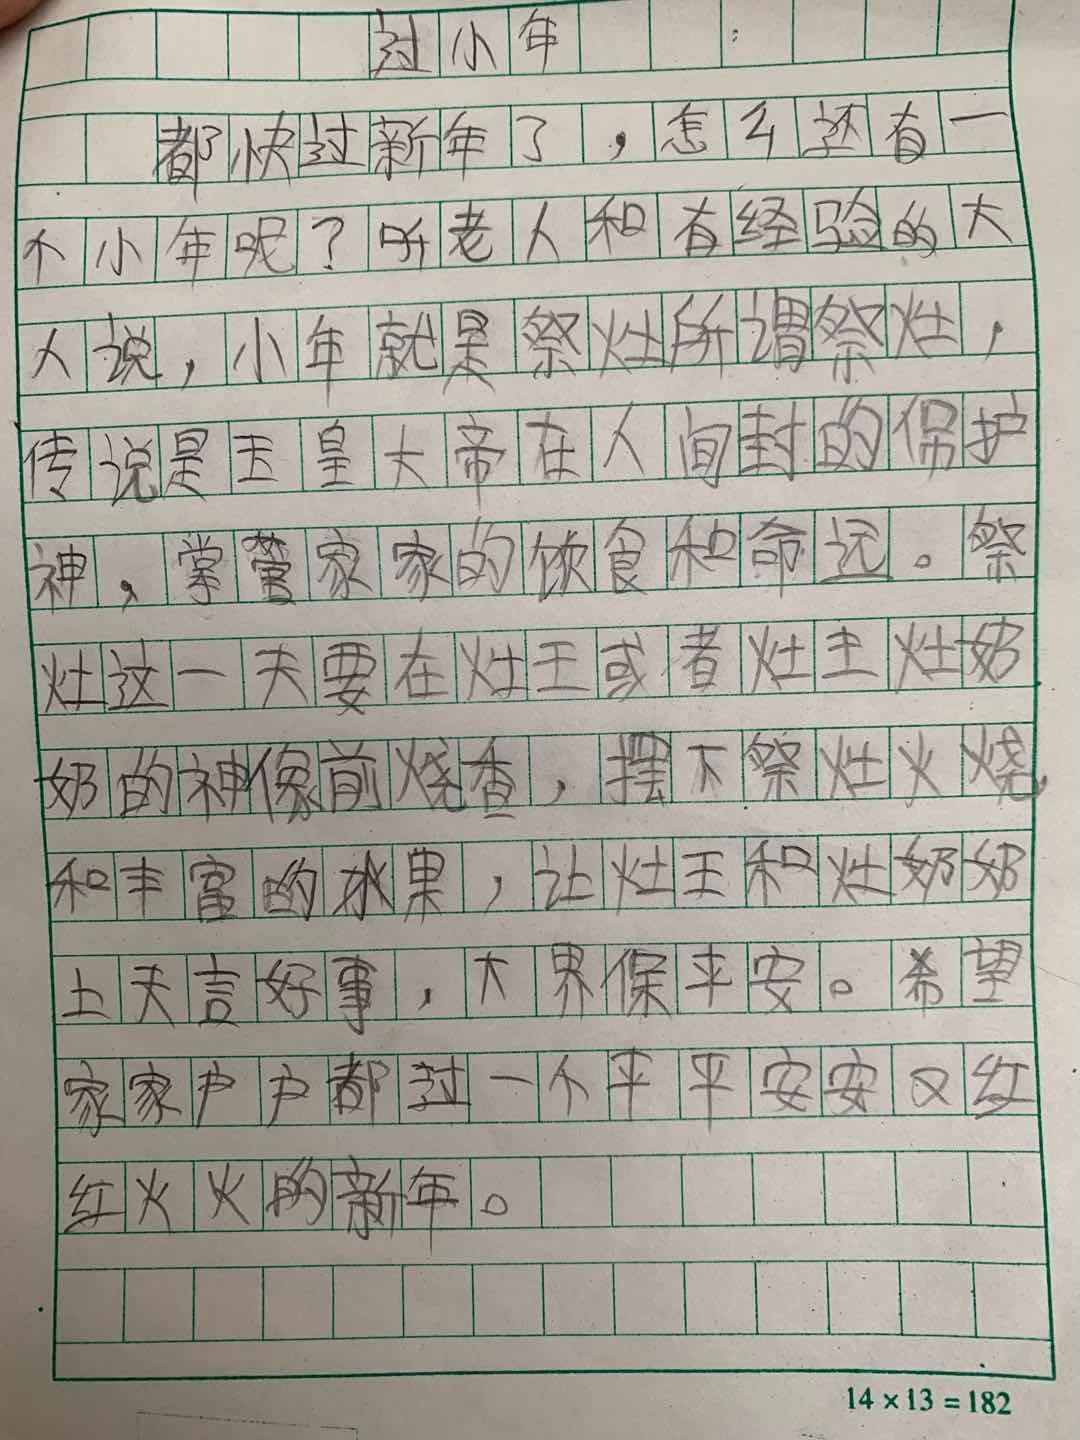 过小年
都快过新年了，怎么还有一
个小年呢？听老人和有经验的大
人说，小年就是祭灶所谓祭灶，
传说是玉皇大帝在人间封的保护
神，掌管家家的饮食和命远。祭
灶这一天要在灶王或者灶王灶奶
奶的神像前烧香，摆下祭灶火烧，
和丰富的水果，让灶王和灶奶奶
上天言好事，大界保平安。希望
家家户户都过一个平平安安又红
红火火的新年。
14×13=182